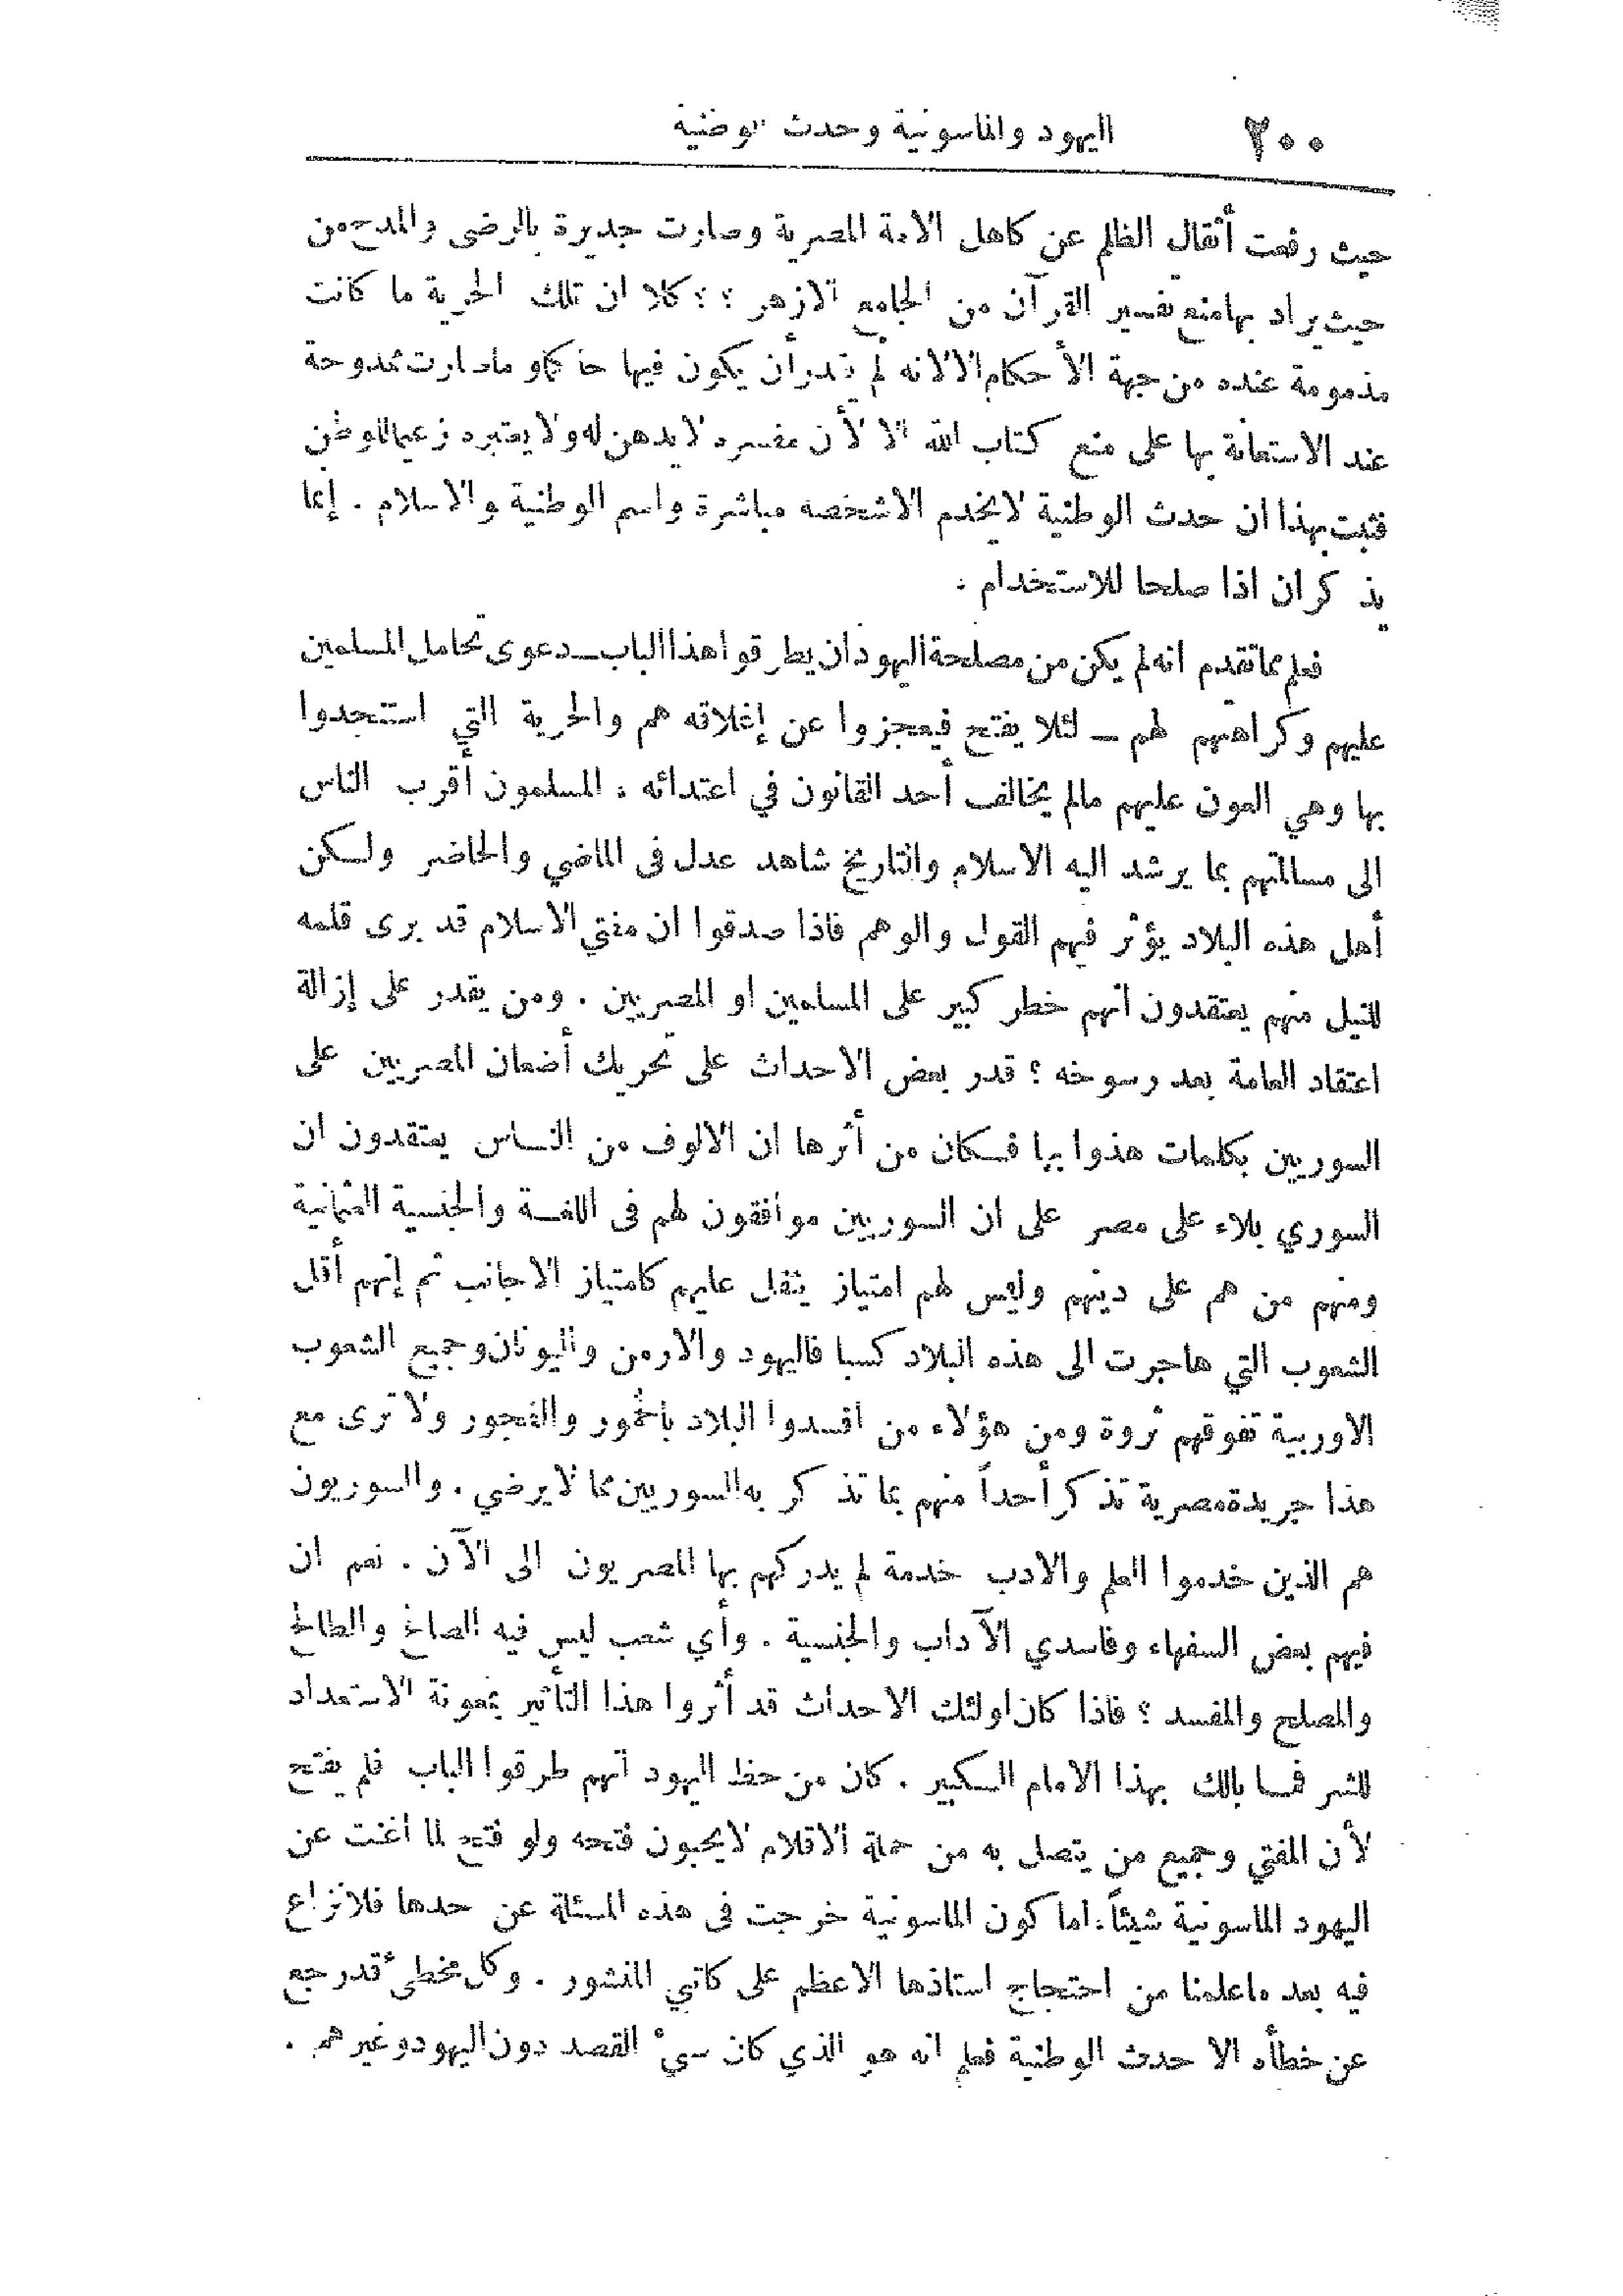 ٢٠٠ اليهود والماسونية وحدث الوطنية
حيث رفعت أثقال الظلم عن كاهل الامة المصرية وصارت جديرة بالرضى والمدح من
حيث يراد بها منع تفسير القرآن من الجامع الازهر ؛ ؛ كلا ان تلك الحرية ما كانت
مذمومة عنده من جهة الأحكام الا لانه لم يقدر أن يكون فيها حاكما وما صارت ممدوحة
عند الاستعانة بها على منع كتاب الله الا لأن مفسره لا يدهن له ولا يعتبره زعيما للوطن
فثبت بهذا ان حدث الوطنية لا يخدم الا شخصه مباشرة واسم الوطنية والاسلام . إنما
يذكران اذا صلحا للاستخدام .
فعلم مما تقدم انه لم يكن من مصلحة اليهود ان يطرقوا هذا الباب ــ دعوى تحامل المسلمين
عليهم وكراهتهم لهم ــ لئلا يفتح فيعجزوا عن إغلاقه هم والحرية التي استنجدوا
بها وهي العون عليهم مالم يخالف أحد القانون في اعتدائه . المسلمون أقرب الناس
الى مسالمتهم بما يرشد اليه الاسلام والتاريخ شاهد عدل فى الماضي والحاضر ولكن
أهل هذه البلاد يؤثر فيهم القول والوهم فاذا صدقوا ان مفتي الاسلام قد برى قلمه
للنيل منهم يعتقدون انهم خطر كبير على المسلمين او المصريين . ومن يقدر على إزالة
اعتقاد العامة بعد رسوخه ؟ قدر بعض الاحداث على تحريك أضغان المصريين على
السوريين بكلمات هذوا بها فكان من أثرها ان الالوف من الناس يعتقدون ان
السوري بلاء على مصر على ان السوريين موافقون لهم فى اللغة والجنسية العثمانية
ومنهم من هم على دينهم وليس لهم امتياز يثقل عليهم كامتياز الاجانب ثم إنهم أقل
الشعوب التي هاجرت الى هذه البلاد كسبا فاليهود والارمن واليونان وجميع الشعوب
الاوربية تفوقهم ثروة ومن هؤلاء من افسدوا البلاد بالخمور والفجور ولا ترى مع
هذا جريدة مصرية تذكر أحداً منهم بما تذكر به السوريين مما لا يرضي . والسوريون
هم الذين خدموا العلم والادب خدمة لم يدركهم بها المصريون الى الآن . نعم ان
فيهم بعض السفهاء وفاسدي الآداب والجنسية . وأي شعب ليس فيه الصالح والطالح
والمصلح والمفسد ؟ فاذا كان اولئك الاحداث قد أثروا هذا التأثير بمعونة الاستعداد
للشر فما بالك بهذا الامام الكبير . كان من حظ اليهود انهم طرقوا الباب فلم يفتح
لأن المفتي وجميع من يتصل به من حملة الاقلام لا يحبون فتحه ولو فتح لما اغنت عن
اليهود الماسونية شيئاً . اما كون الماسونية خرجت فى هذه المسئلة عن حدها فلا نزاع
فيه بعد ما علمنا من احتجاج استاذها الاعظم على كاتبي المنشور . وكل مخطئ قد رجع
عن خطأه الا حدث الوطنية فعلم انه هو الذي كان سيء القصد دون اليهود وغيرهم .